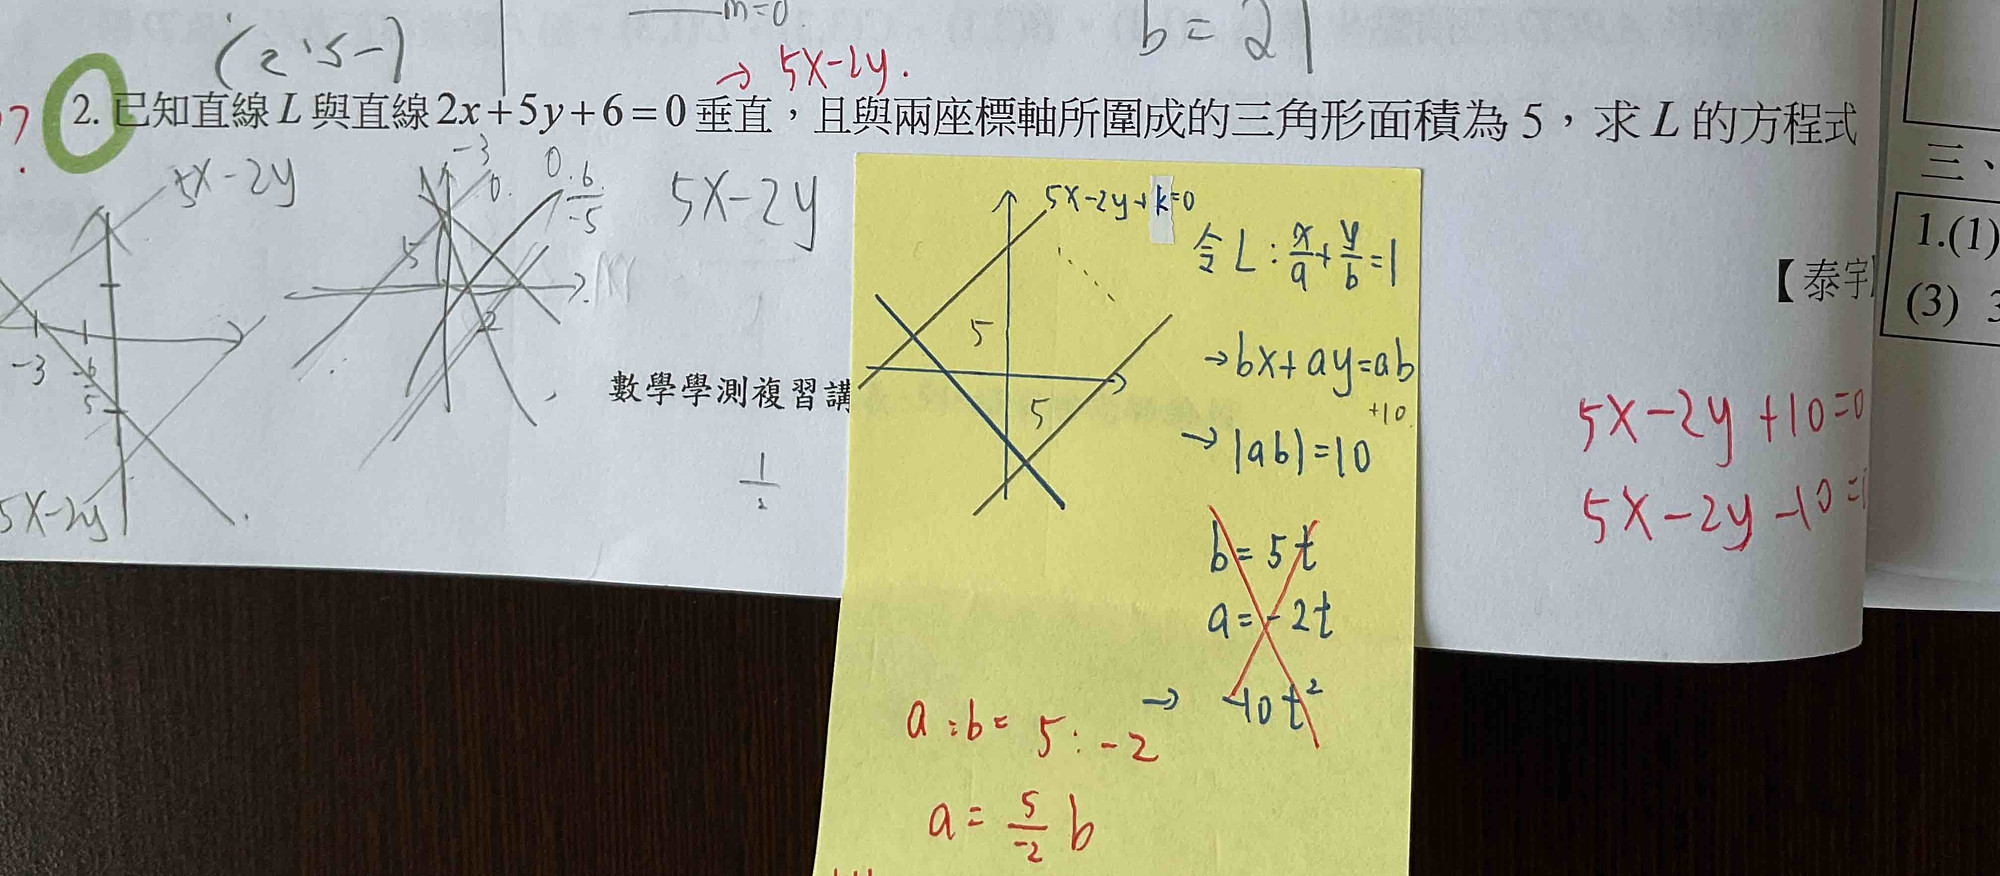 m=0
b=21
(2,5-)
→ 5x-2y.
?
2. 已知直線 L 與直線 2x+5y+6=0 垂直，且與兩座標軸所圍成的三角形面積為 5，求 L 的方程式
5x-2y
-3
-6/5
5x-2y
-3
0.
0.
6/-5
5
2
5x-2y
【泰宇
數學學測複習講
1/2
5x-2y+k=0
5
5
令 L: x/a+y/b=1
→bx+ay=ab
+10
→|ab|=10
b=5t
a=-2t
→ -10t²
a:b= 5:-2
a= 5/-2 b
5x-2y+10=0
5x-2y-10=
三、
1.(1)
(3)